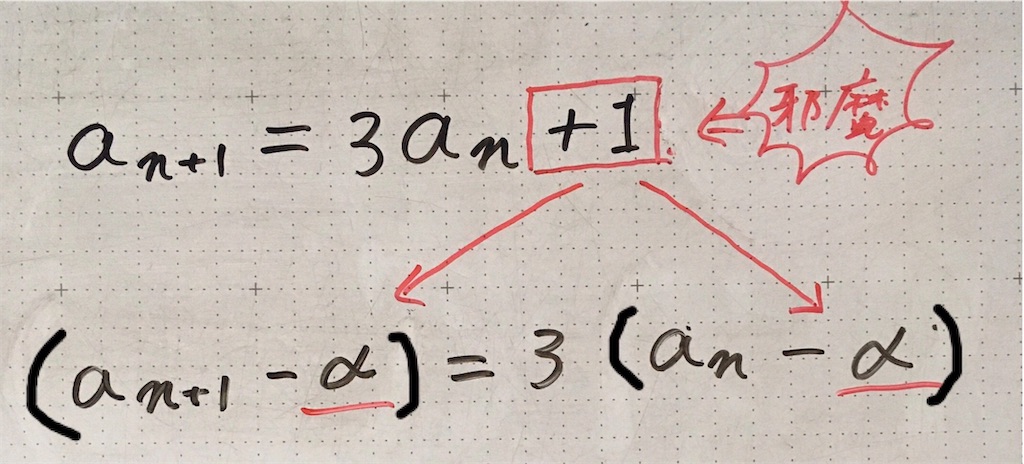 aₙ₊₁ = 3aₙ +1
邪魔
(aₙ₊₁ - α) = 3 (aₙ - α)